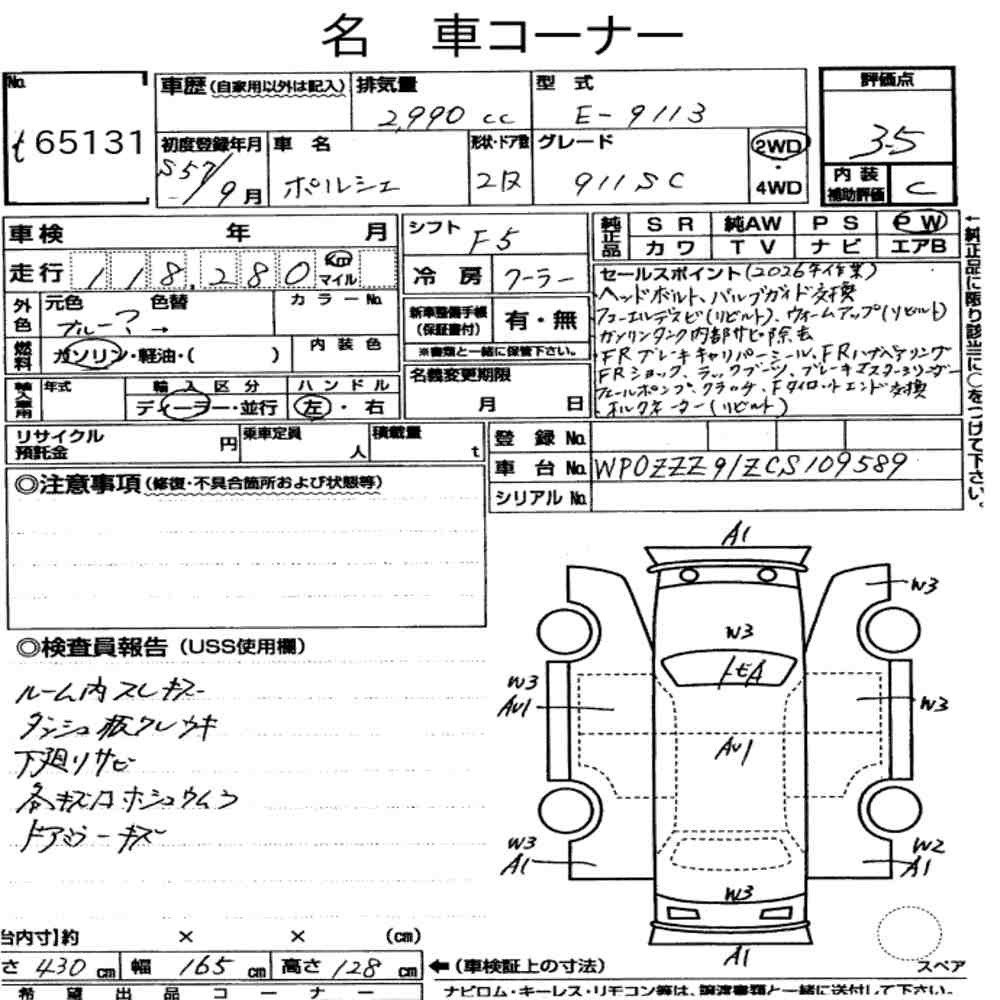 名 車コーナー
No.
t 65131
車歴(自家用以外は記入)
排気量
2,990 cc
型 式
E-9113
評価点
3.5
初度登録年月
S57/9月
車 名
ポルシェ
形状・ドア数
2D
グレード
911SC
2WD
・
4WD
内 装
補助評価
C
車検 年 月
走行 118,280 km
マイル
シフト
F5
冷 房
クーラー
純正品
SR 純AW PS PW
カワ TV ナビ エアB
←純正品に限り該当に○をつけて下さい。
外色
元色 色替
ブルー? →
カラーNo.
燃料
ガソリン・軽油・( )
内 装 色
新車整備手帳
(保証書付)
有・無
※書類と一緒に保管下さい。
輸入車用
年式
輸 入 区 分
ディーラー・並行
ハ ン ド ル
左・右
名義変更期限
月 日
セールスポイント(2026年作業)
ヘッドボルト、バルブガイド交換
フューエルデスビ(リビルト)、ウォームアップ(リビルト)
ガソリンタンク内部サビ除去
FRブレーキキャリパーシール、FRハブベアリング
FRショック、ラックブーツ、ブレーキマスターシリンダー
フューエルポンプ、クラッチ、Fタイロットエンド交換
オルタネーター(リビルト)
リサイクル
預託金
円
乗車定員
人
積載量
t
登 録 No.
車 台 No.
WP0ZZZ91ZCS109589
シリアル No.
◎注意事項(修復・不具合箇所および状態等)
◎検査員報告(USS使用欄)
ルーム内スレキズ
ダッシュ板ワレウキ
下廻りサビ
各キズ凹ホシュウムラ
ドアミラーキズ
A1
W3
W3
トビA
W3
AU1
W3
AU1
W3
A1
W2
A1
W3
A1
スペア
台内寸】約 × × (cm)
さ 430 cm
幅 165 cm
高さ 128 cm
←(車検証上の寸法)
希 望 出 品 コ ー ナ ー
ナビロム・キーレス・リモコン等は、譲渡書類と一緒に送付して下さい。